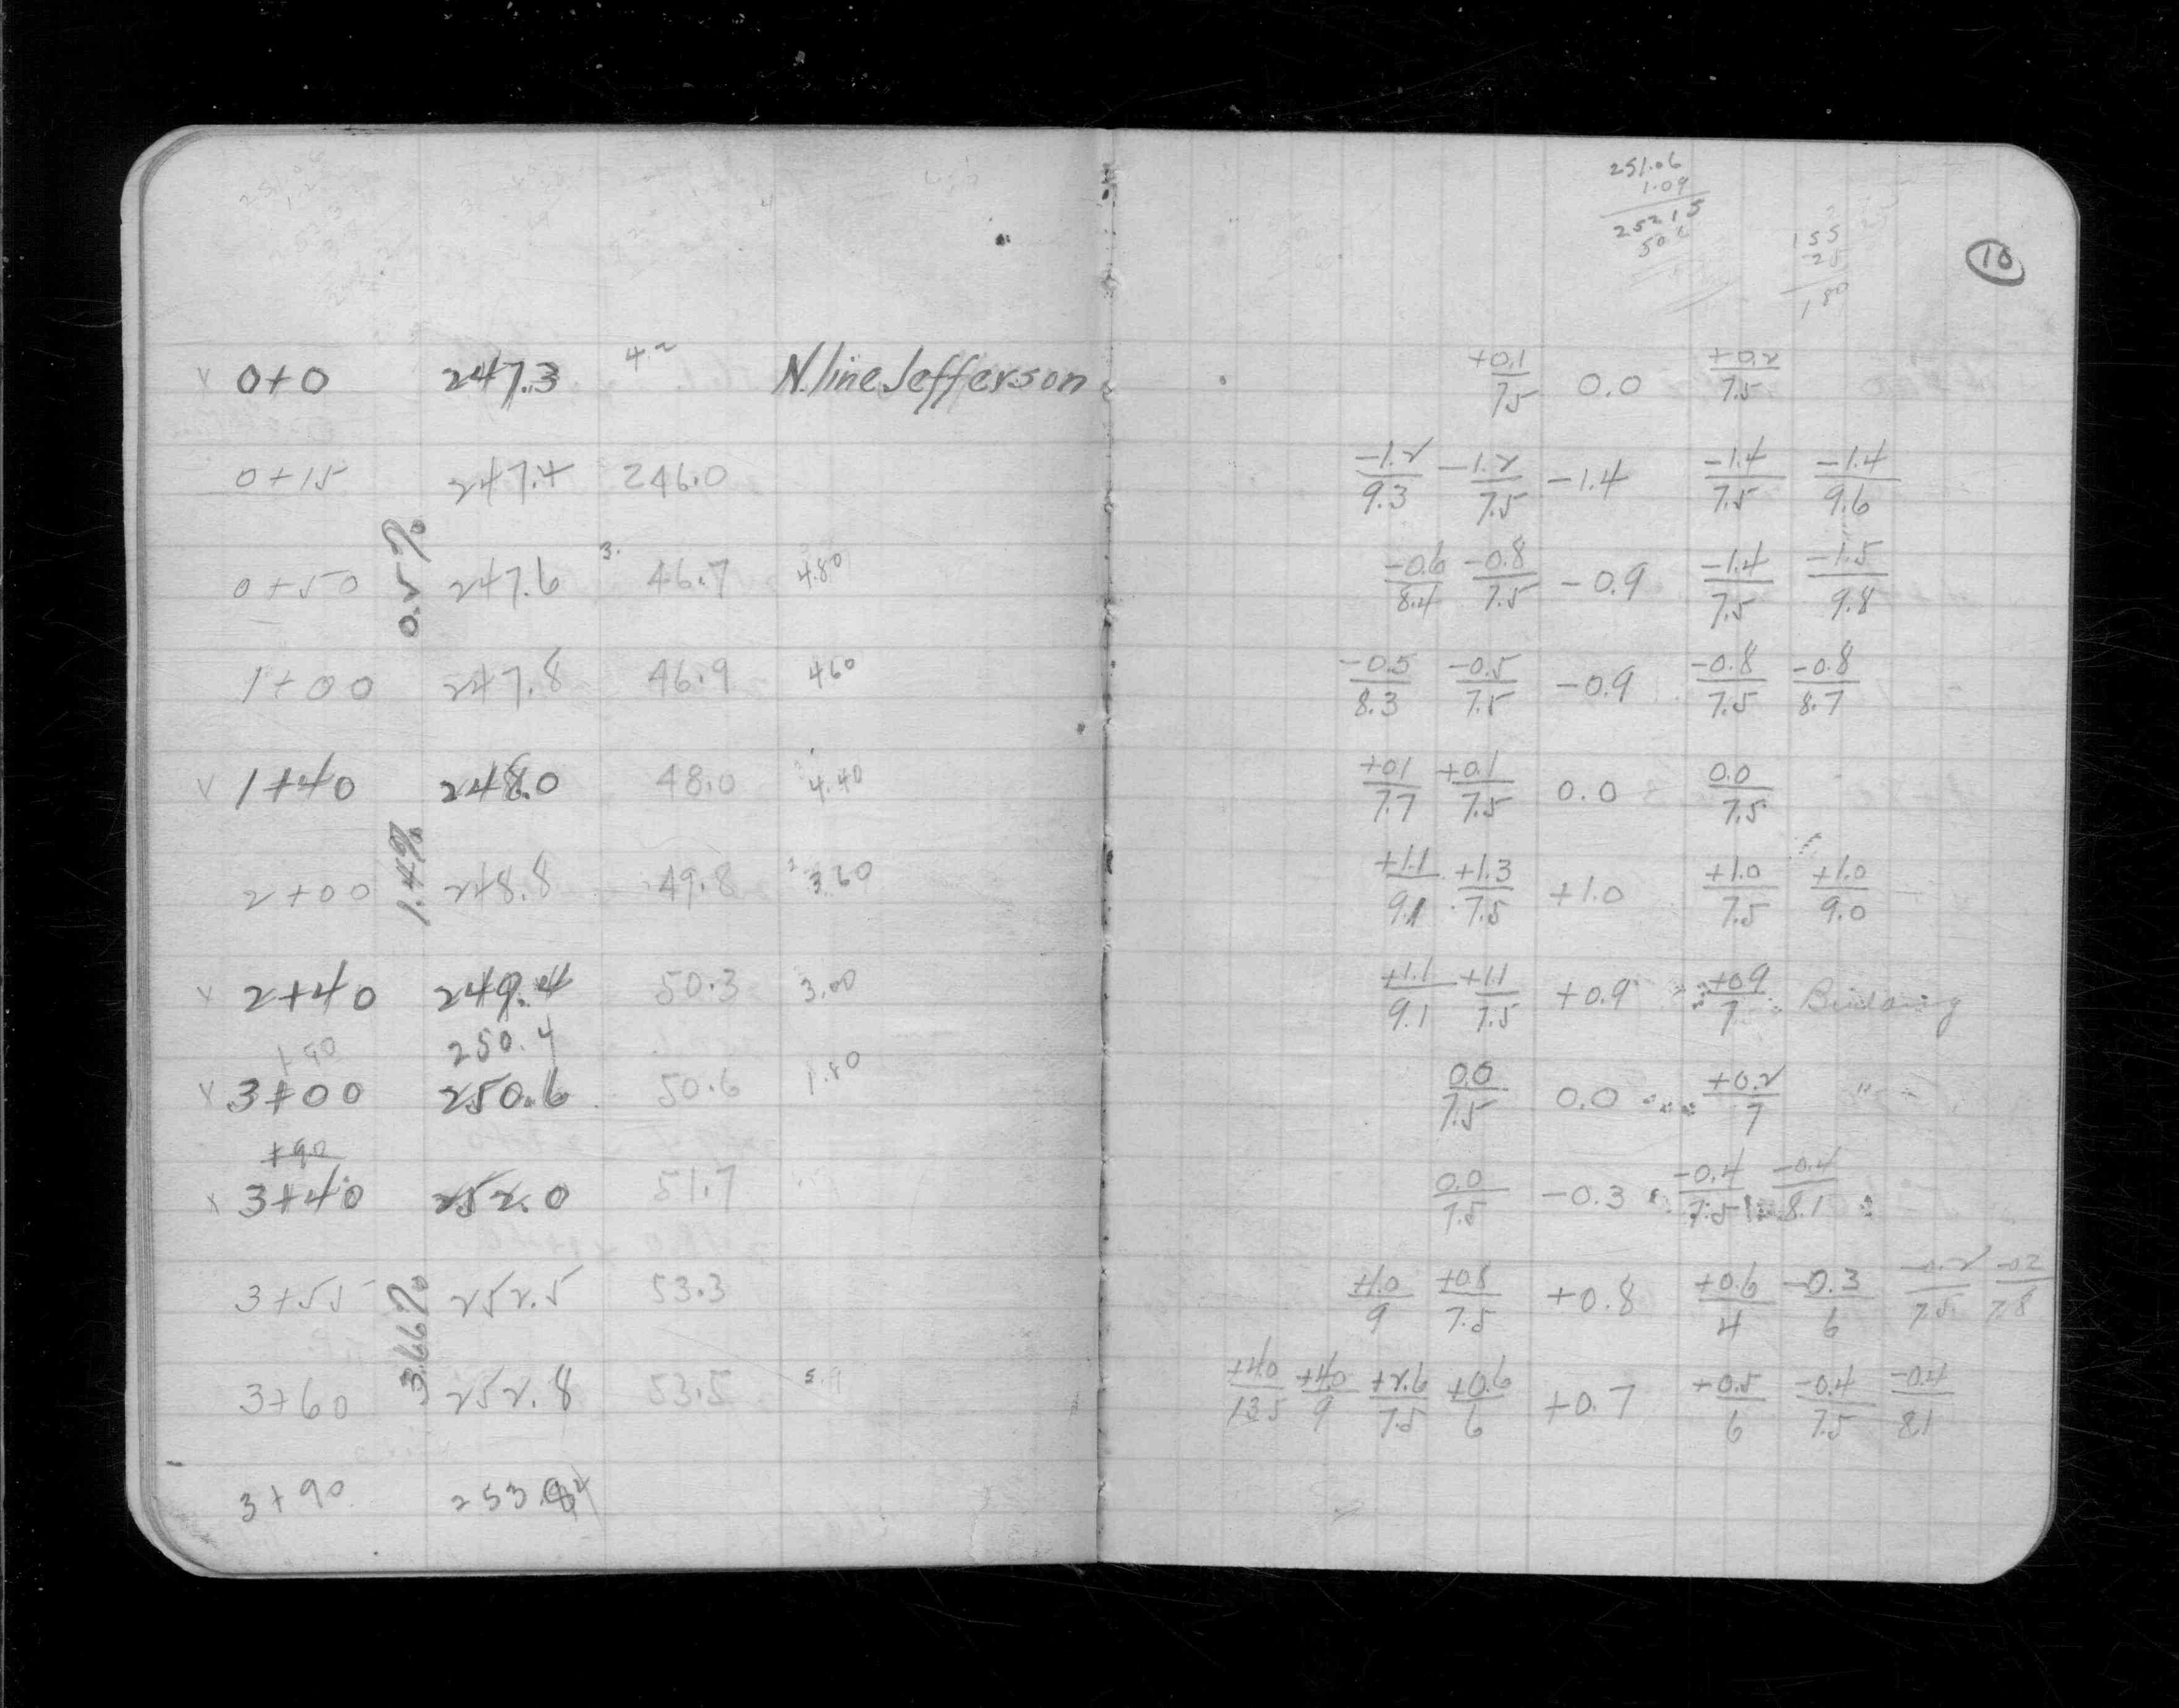 251.06
1.09
252 15
50
155
25
180
10
0+0 247.3 4.2 N. line Jefferson +0.1/7.5 0.0 +0.2/7.5
0+15 247.4 246.0 -1.2/9.3 -1.2/7.5 -1.4 -1.4/7.5 -1.4/9.6
0.5%
0+50 247.6 3. 46.7 4.80 -0.6/8.4 -0.8/7.5 -0.9 -1.4/7.5 -1.5/9.8
1+00 247.8 46.9 460 -0.5/8.3 -0.5/7.5 -0.9 -0.8/7.5 -0.8/8.7
v 1+40 248.0 48.0 4.40 +0.1/7.7 +0.1/7.5 0.0 0.0/7.5
1.44%
2+00 248.8 49.8 3.60 +1.1/9.1 +1.3/7.5 +1.0 +1.0/7.5 +1.0/9.0
v 2+40 249.4 50.3 3.00 +1.1/9.1 +1.1/7.5 +0.9 +0.9/7
+90 250.4
v 3+00 250.6 50.6 1.80 0.0/7.5 0.0 +0.2/7 "
+90
x 3+40 252.0 51.7 0.0/7.5 -0.3 -0.4/7.5 -0.4/8.1
3+55 252.5 53.3 +1.0/9 +0.8/7.5 +0.8 +0.6/4 -0.3/6 -0.2/7.5 -0.2/7.8
3.66%
3+60 252.8 53.5 +4.0/13.5 +4.0/9 +2.6/7.5 +0.6/6 +0.7 +0.5/6 -0.4/7.5 -0.4/8.1
3+90